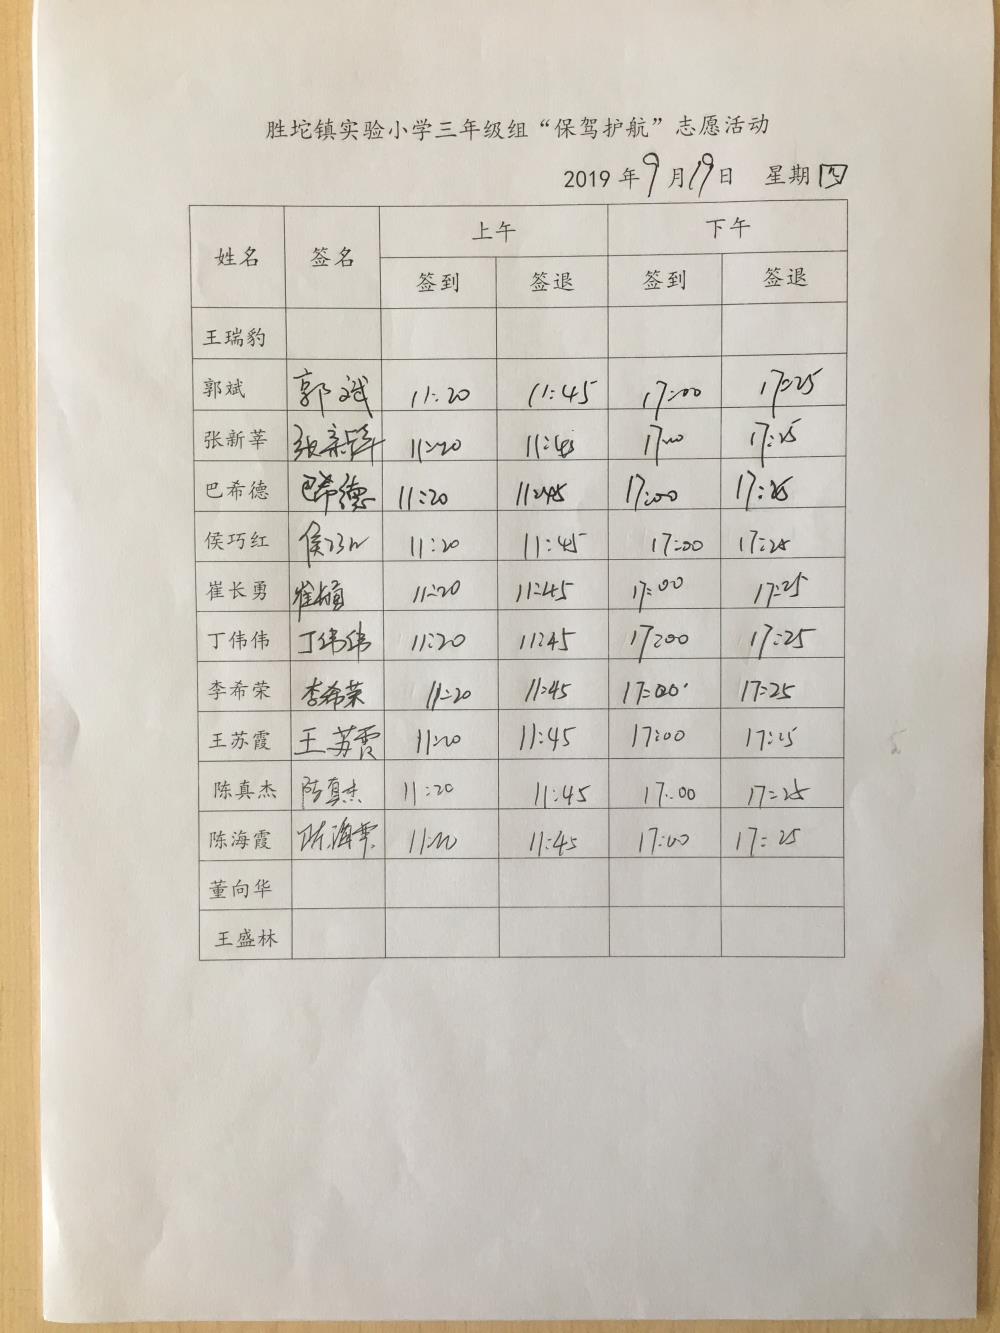 胜坨镇实验小学三年级组“保驾护航”志愿活动
2019 年 9 月 19 日 星期 四
姓名 签名 上午 下午
签到 签退 签到 签退
王瑞豹
郭斌 郭斌 11:20 11:45 17:00 17:25
张新莘 张新莘 11:20 11:45 17:00 17:25
巴希德 巴希德 11:20 11:45 17:00 17:25
侯巧红 侯巧红 11:20 11:45 17:00 17:25
崔长勇 崔长勇 11:20 11:45 17:00 17:25
丁伟伟 丁伟伟 11:20 11:45 17:00 17:25
李希荣 李希荣 11:20 11:45 17:00 17:25
王苏霞 王苏霞 11:20 11:45 17:00 17:25
陈真杰 陈真杰 11:20 11:45 17:00 17:25
陈海霞 陈海霞 11:20 11:45 17:00 17:25
董向华
王盛林